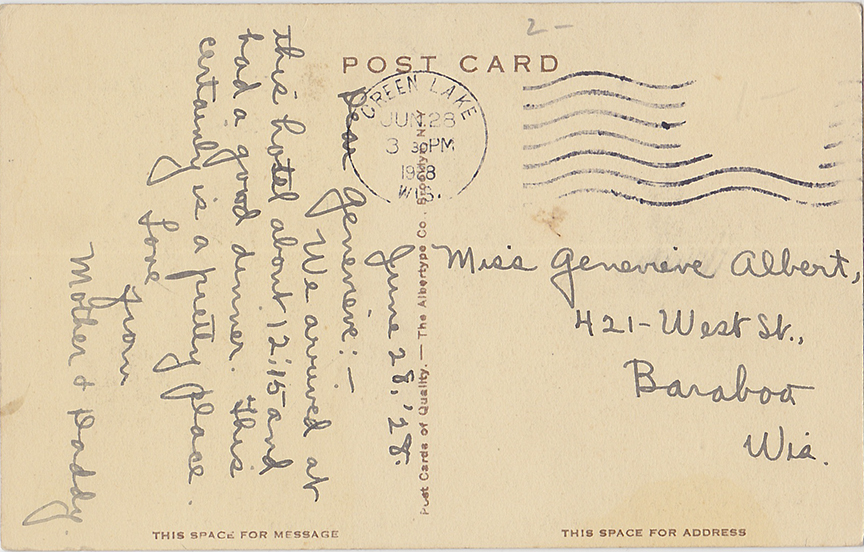 2-
POST CARD
GREEN LAKE
JUN 28
3 30 PM
1928
WIS.
June 28, '28.
Dear Genevieve:-
We arrived at
this hotel about 12:15 and
had a good dinner. This
certainly is a pretty place.
Love
from
Mother + Daddy.
Post Cards of Quality. — The Albertype Co., Brooklyn, N.Y.
Miss Genevieve Albert,
421-West St.,
Baraboo
Wis.
THIS SPACE FOR MESSAGE
THIS SPACE FOR ADDRESS